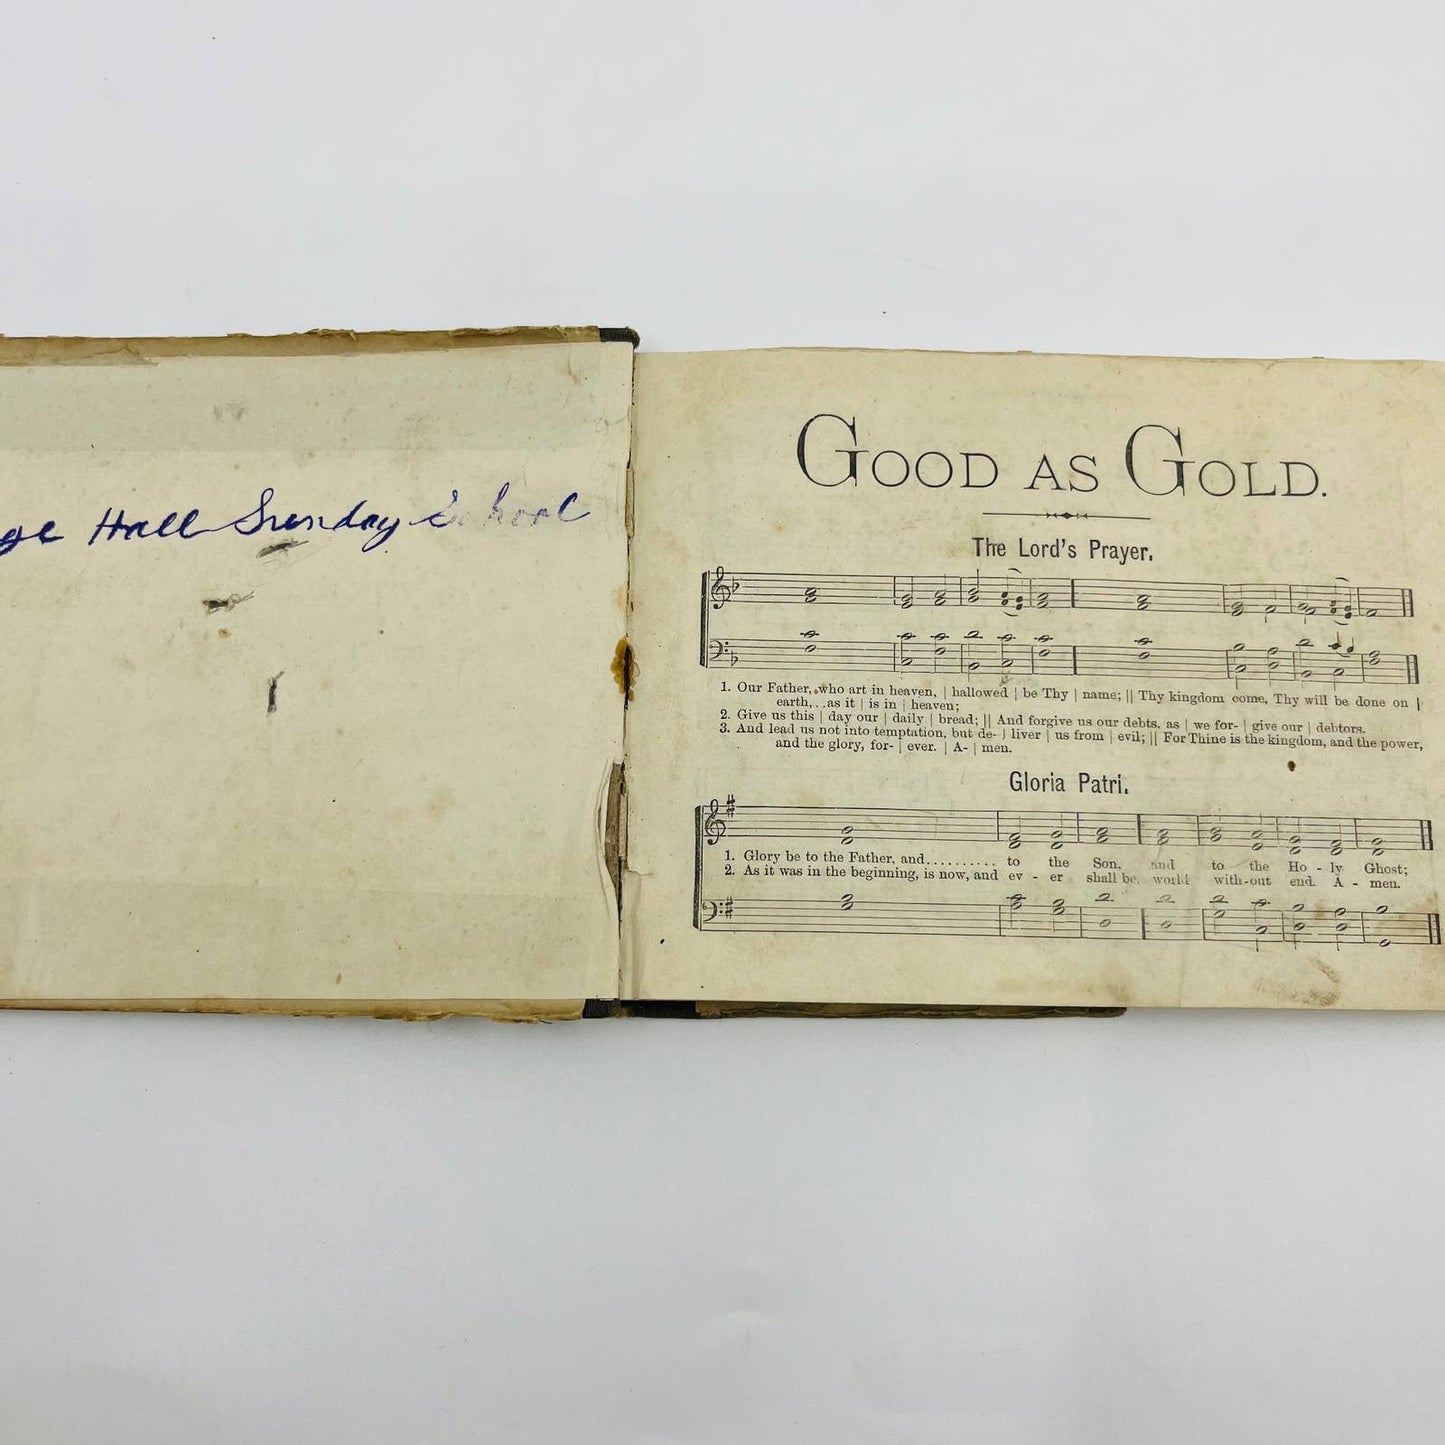 Hall Sunday School
GOOD AS GOLD.
The Lord's Prayer.
1. Our Father, who art in heaven, | hallowed | be Thy | name; || Thy kingdom come, Thy will be done on |
earth,..as it | is in | heaven;
2. Give us this | day our | daily | bread; || And forgive us our debts, as | we for- | give our | debtors.
3. And lead us not into temptation, but de- | liver | us from | evil; || For Thine is the kingdom, and the power,
and the glory, for- | ever. | A- | men.
Gloria Patri.
1. Glory be to the Father, and.......... to the Son, and to the Ho - ly Ghost;
2. As it was in the beginning, is now, and ev - er shall be, world with-out end. A - men.